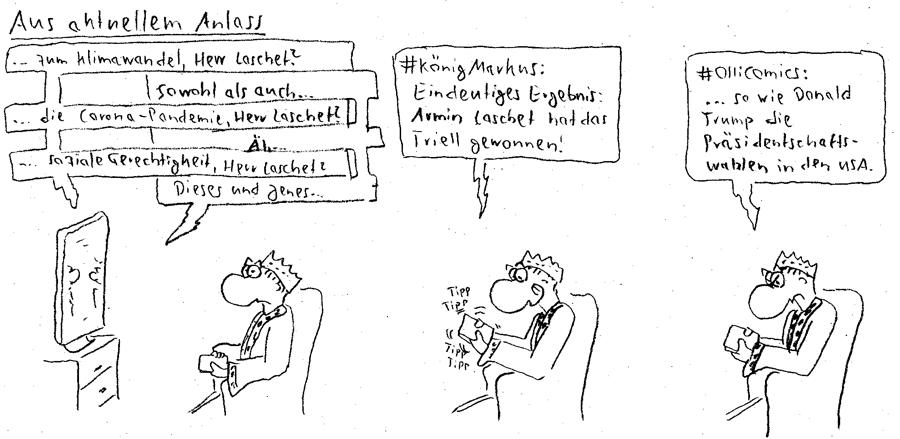 Aus aktuellem Anlass
... zum Klimawandel, Herr Laschet?
Sowohl als auch...
... die Corona-Pandemie, Herr Laschet?
Äh...
... soziale Gerechtigkeit, Herr Laschet?
Dieses und jenes...
#KönigMarkus:
Eindeutiges Ergebnis:
Armin Laschet hat das
Triell gewonnen!
Tipp
Tipp
Tipp
Tipp
#OlliComics:
... so wie Donald
Trump die
Präsidentschafts-
wahlen in den USA.